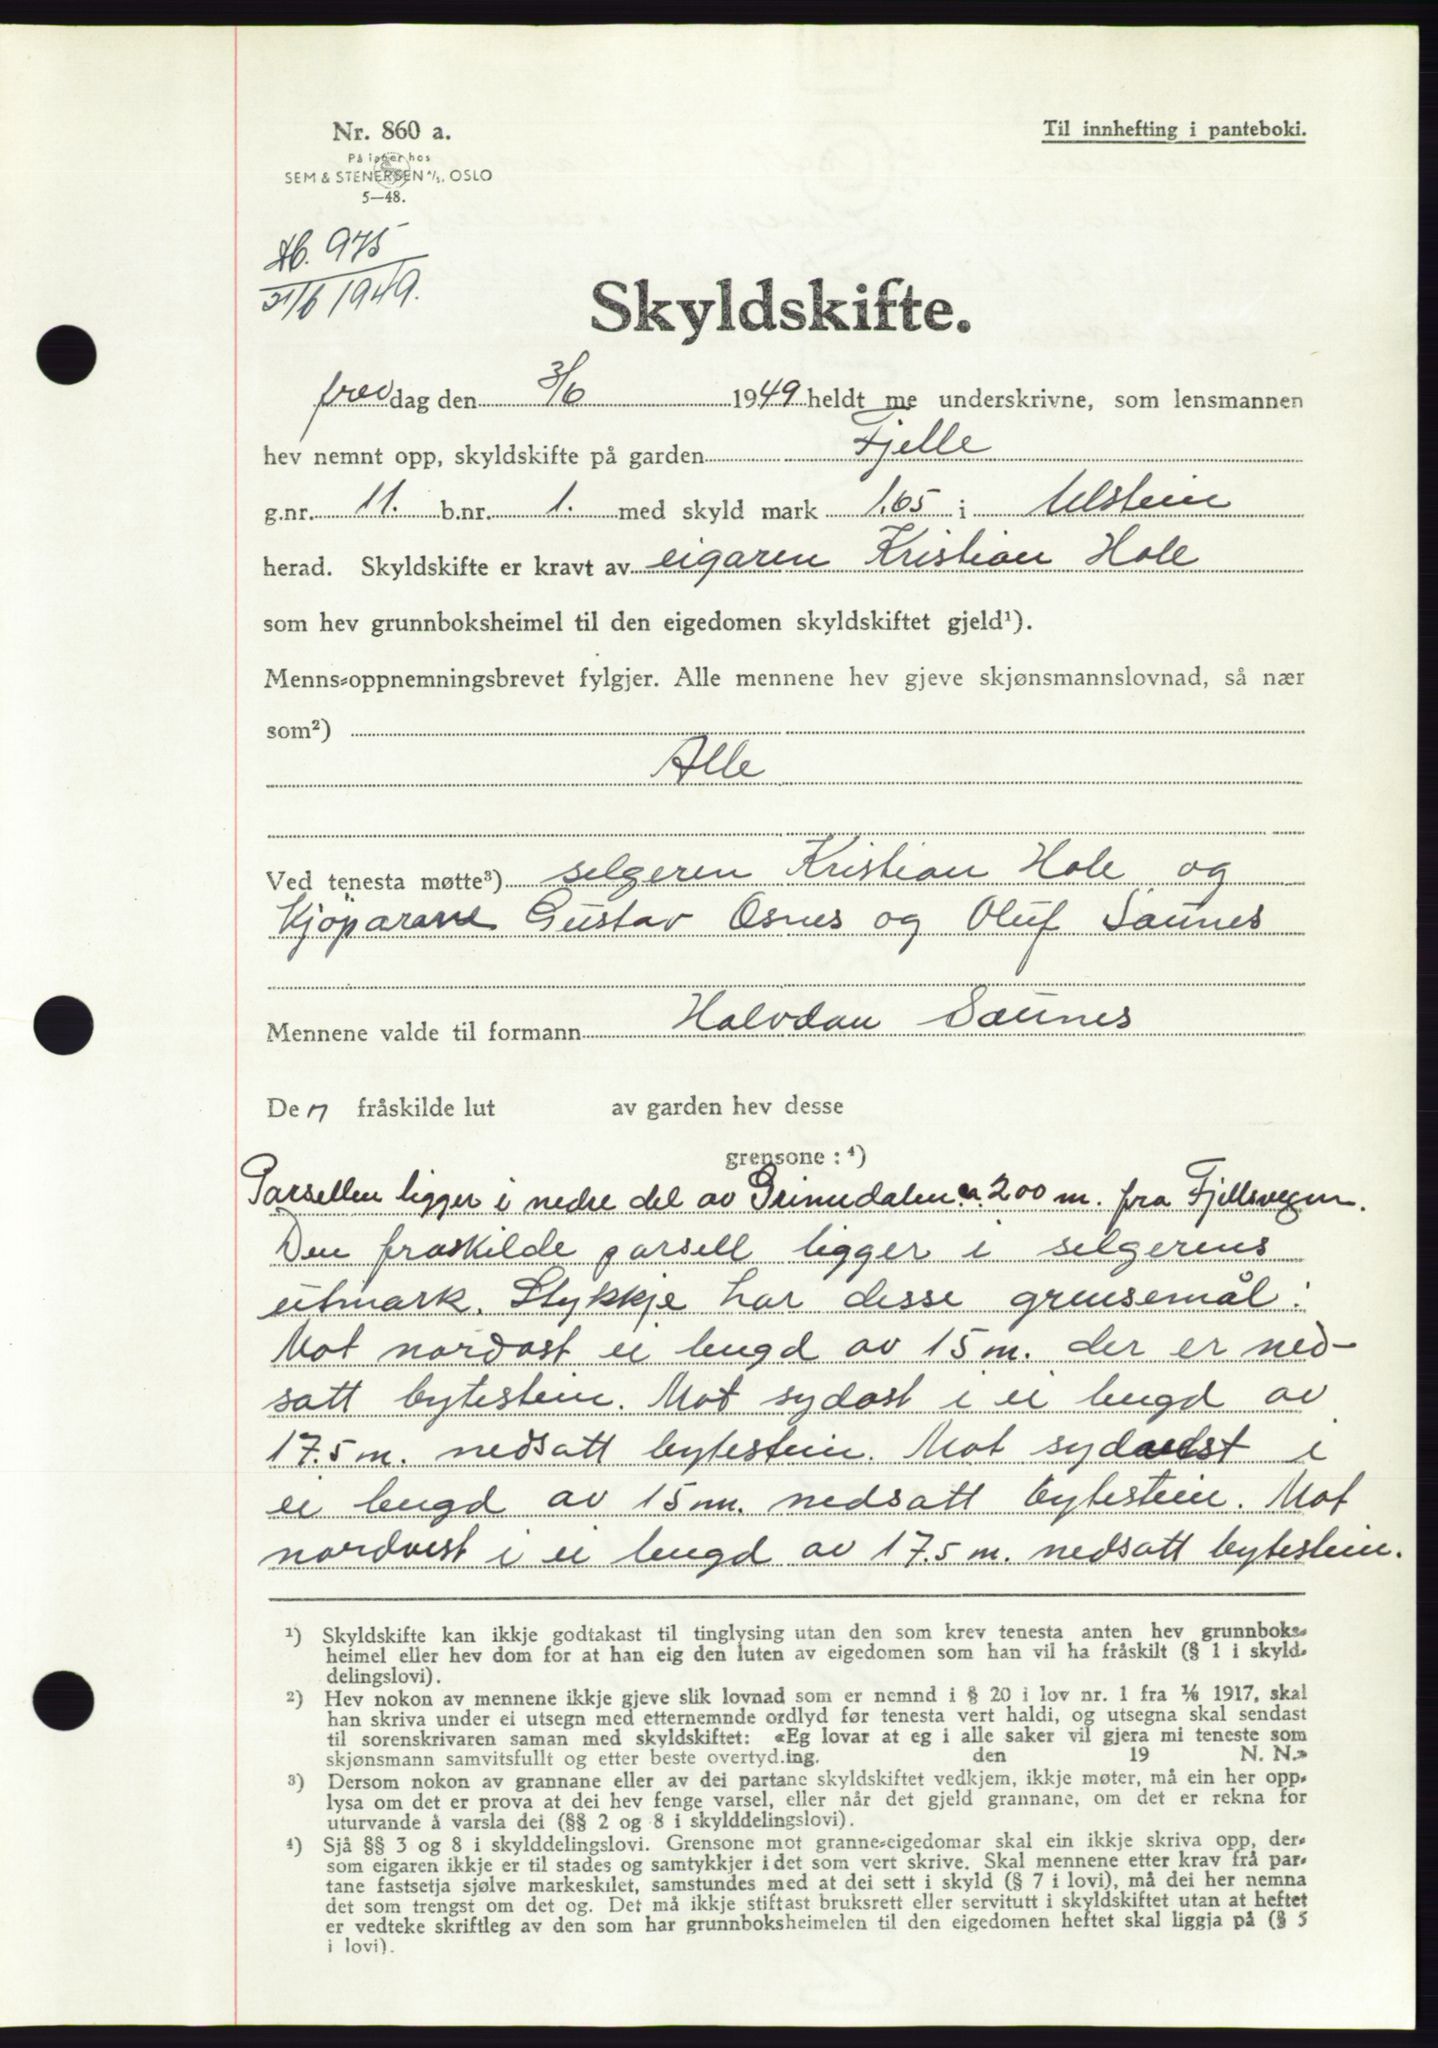 Nr. 860 a.
På lager hos
SEM & STENERSEN A/S, OSLO
5—48.
Til innhefting i panteboki.
Db. 975
21/6 1949.
Skyldskifte.
fredag den 3/6 1949 heldt me underskrivne, som lensmannen
hev nemnt opp, skyldskifte på garden Fjelle
g.nr. 11. b.nr. 1. med skyld mark 1,65 i Ulstein
herad. Skyldskifte er kravt av eigaren Kristian Hole
som hev grunnboksheimel til den eigedomen skyldskiftet gjeld¹).
Menns-oppnemningsbrevet fylgjer. Alle mennene hev gjeve skjønsmannslovnad, så nær
som²)
Alle
Ved tenesta møtte³) selgeren Kristian Hole og
Kjöparane Gustav Osnes og Oluf Saunes
Mennene valde til formann Halvdan Saunes
Den fråskilde lut av garden hev desse
grensone: ⁴)
Parsellen ligger i nedre del av Grimedalen ca. 200 m. fra Fjellsvegen.
Den fraskilde parsell ligger i selgerens
utmark. Stykkje har desse grensemål:
Mot nordost ei lengd av 15 m. der er ned-
satt bytestein. Mot sydost i ei lengd av
17.5 m. nedsatt bytestein. Mot sydvest i
ei lengd av 15 m. nedsatt bytestein. Mot
nordvest i ei lengd av 17.5 m. nedsatt bytestein.
¹) Skyldskifte kan ikkje godtakast til tinglysing utan den som krev tenesta anten hev grunnboks-
heimel eller hev dom for at han eig den luten av eigedomen som han vil ha fråskilt (§ 1 i skyld-
delingslovi).
²) Hev nokon av mennene ikkje gjeve slik lovnad som er nemnd i § 20 i lov nr. 1 fra 1/6 1917, skal
han skriva under ei utsegn med etternemnde ordlyd før tenesta vert haldi, og utsegna skal sendast
til sorenskrivaren saman med skyldskiftet: «Eg lovar at eg i alle saker vil gjera mi teneste som
skjønsmann samvitsfullt og etter beste overtyd.ing. den 19 N. N.»
³) Dersom nokon av grannane eller av dei partane skyldskiftet vedkjem, ikkje møter, må ein her opp-
lysa om det er prova at dei hev fenge varsel, eller når det gjeld grannane, om det er rekna for
uturvande å varsla dei (§§ 2 og 8 i skylddelingslovi).
⁴) Sjå §§ 3 og 8 i skylddelingslovi. Grensone mot granne-eigedomar skal ein ikkje skriva opp, der-
som eigaren ikkje er til stades og samtykkjer i det som vert skrive. Skal mennene etter krav frå par-
tane fastsetja sjølve markeskilet, samstundes med at dei sett i skyld (§ 7 i lovi), må dei her nemna
det som trengst om det og. Det må ikkje stiftast bruksrett eller servitutt i skyldskiftet utan at heftet
er vedteke skriftleg av den som har grunnboksheimelen til den eigedomen heftet skal liggja på (§ 5
i lovi).